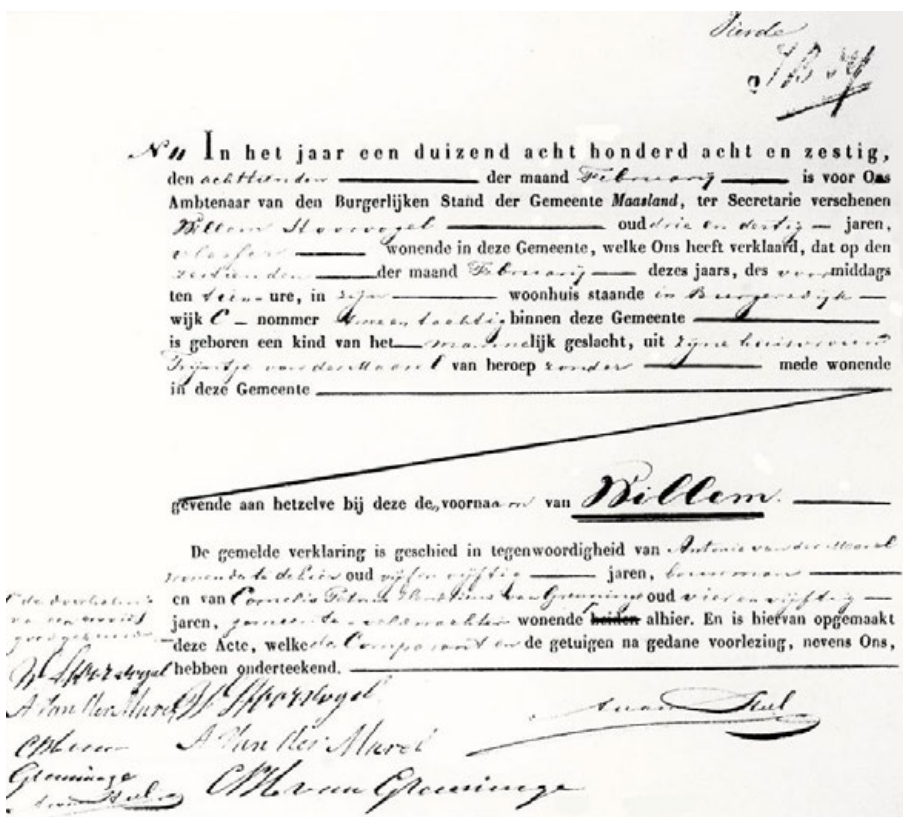 Vierde
N 11 In het jaar een duizend acht honderd acht en zestig,
den achttienden der maand Februarij is voor Ons
Ambtenaar van den Burgerlijken Stand der Gemeente Maasland, ter Secretarie verschenen
Willem Stoorvogel oud drie en dertig jaren,
wonende in deze Gemeente, welke Ons heeft verklaard, dat op den
der maand Februarij dezes jaars, des voormiddags
ten ure, in zijn woonhuis staande in Burgersdijk
wijk C nommer twee en tachtig binnen deze Gemeente
is geboren een kind van het mannelijk geslacht, uit zijne huisvrouw
Trijntje van der Maarel van beroep zonder mede wonende
in deze Gemeente
gevende aan hetzelve bij deze de voornaam van Willem.
De gemelde verklaring is geschied in tegenwoordigheid van Antonie van der Maarel
wonende te de Lier oud vijf en vijftig jaren, bouwman
en van Cornelis Petrus van Greuninge oud vier en vijftig
jaren, gemeente veldwachter wonende beiden alhier. En is hiervan opgemaakt
deze Acte, welke de Comparant en de getuigen na gedane voorlezing, nevens Ons,
hebben onderteekend.
de doorhaling
van een woord
goedgekeurd
W Stoorvogel W Stoorvogel
A Van der Marel A Van der Marel
van Greuninge van Greuninge